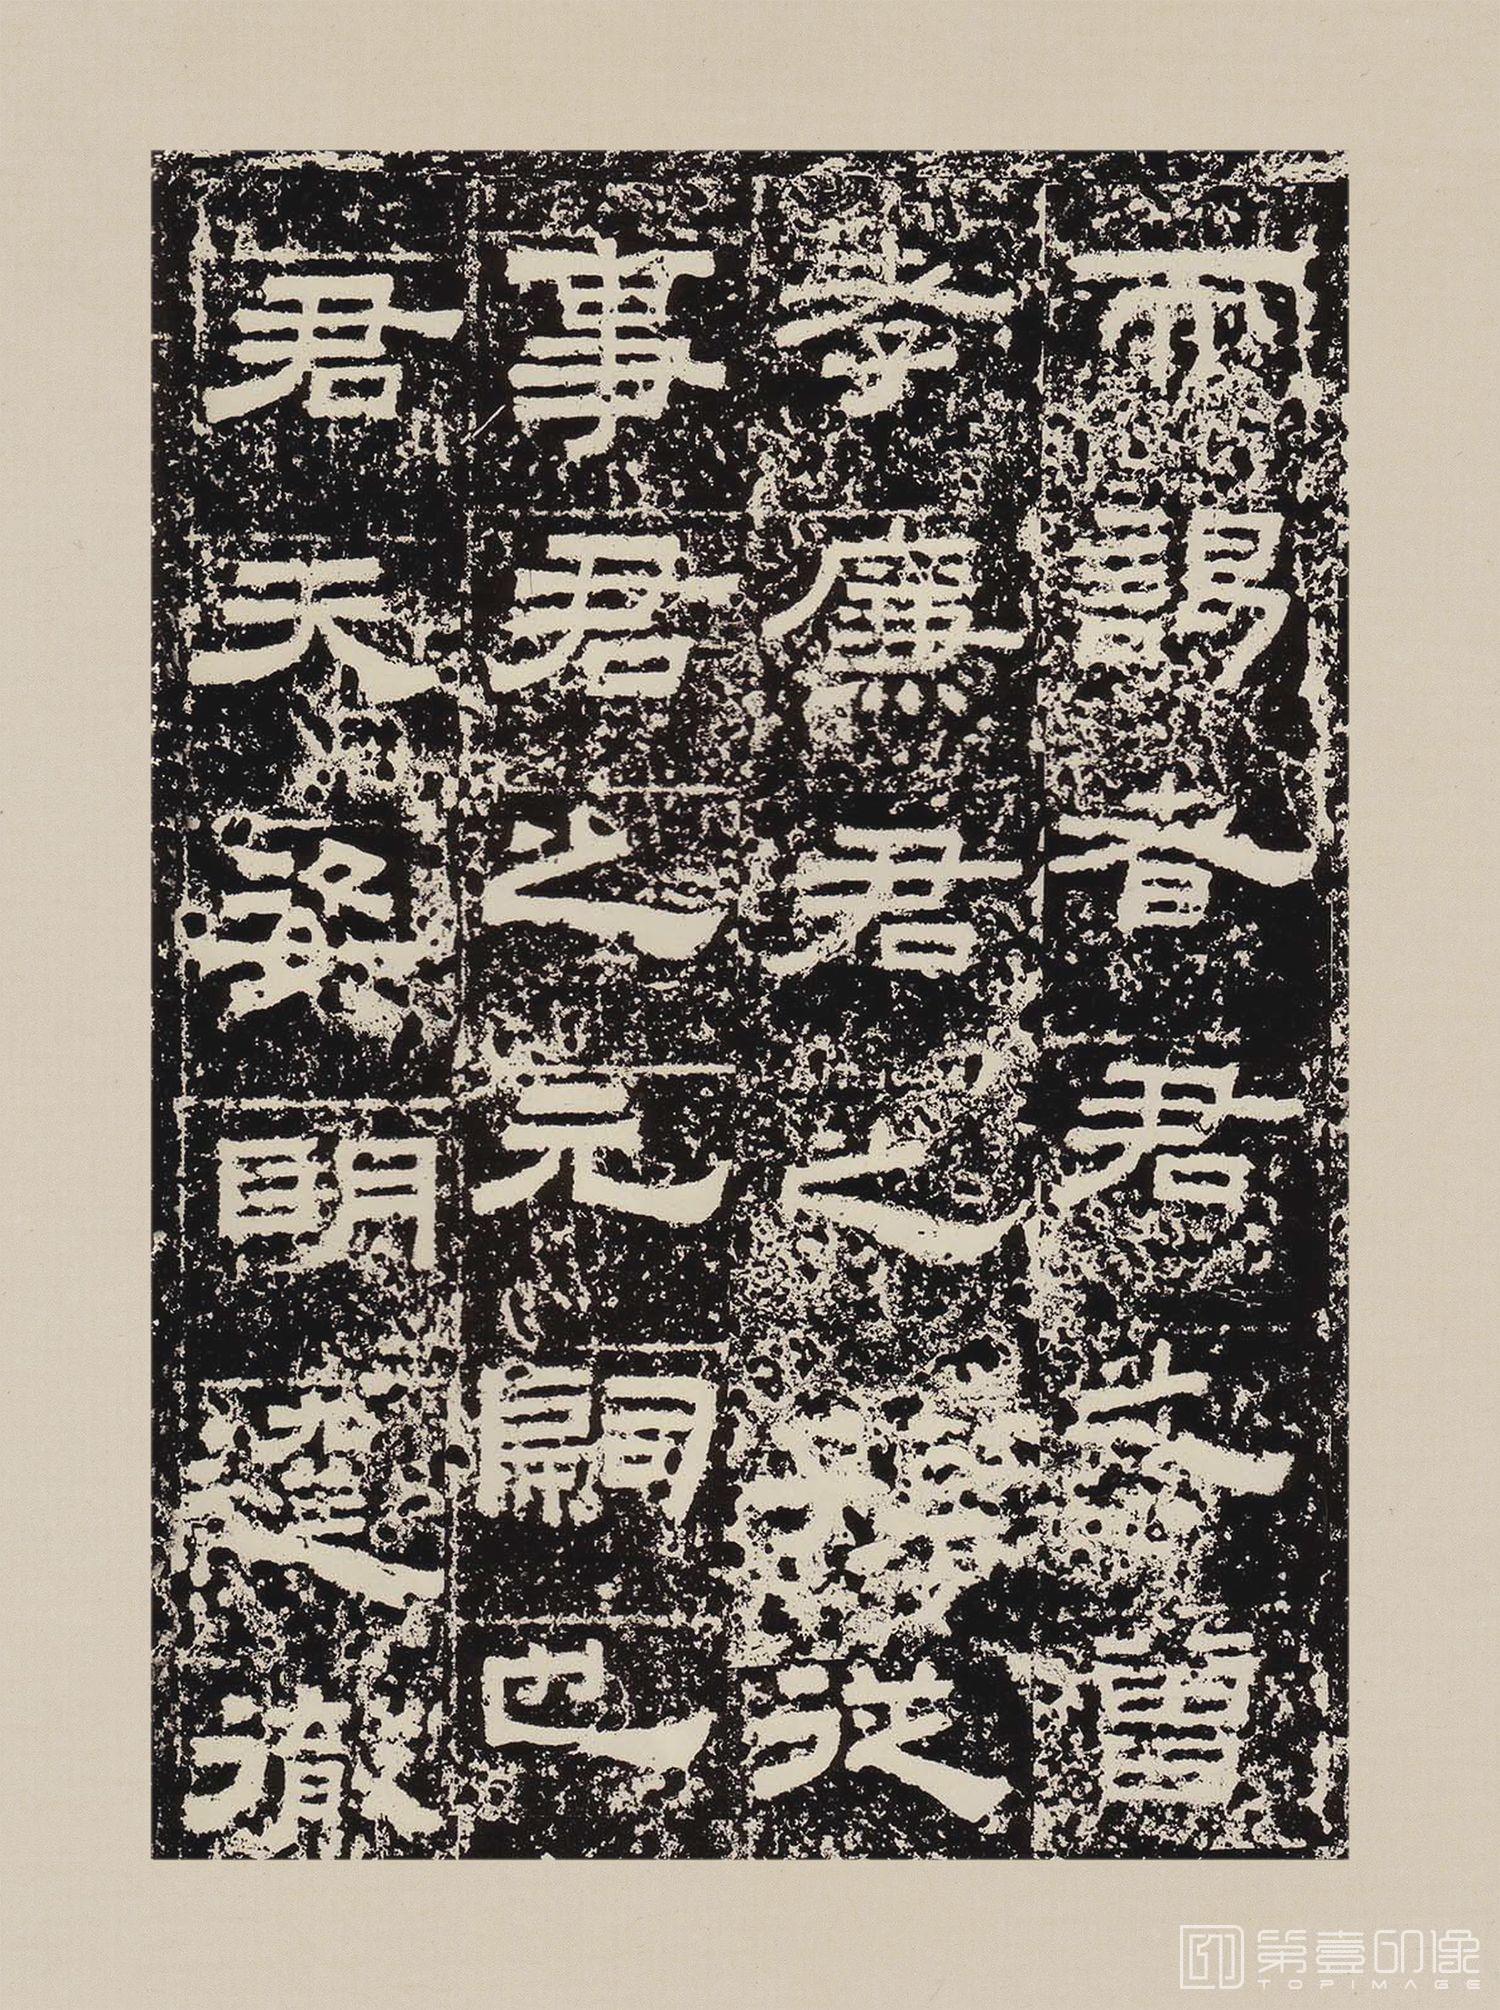 而謁者君之曾
孝廉君之孫從
事君之元嗣也
君天姿明達徹
第壹印像
TOPIMAGE